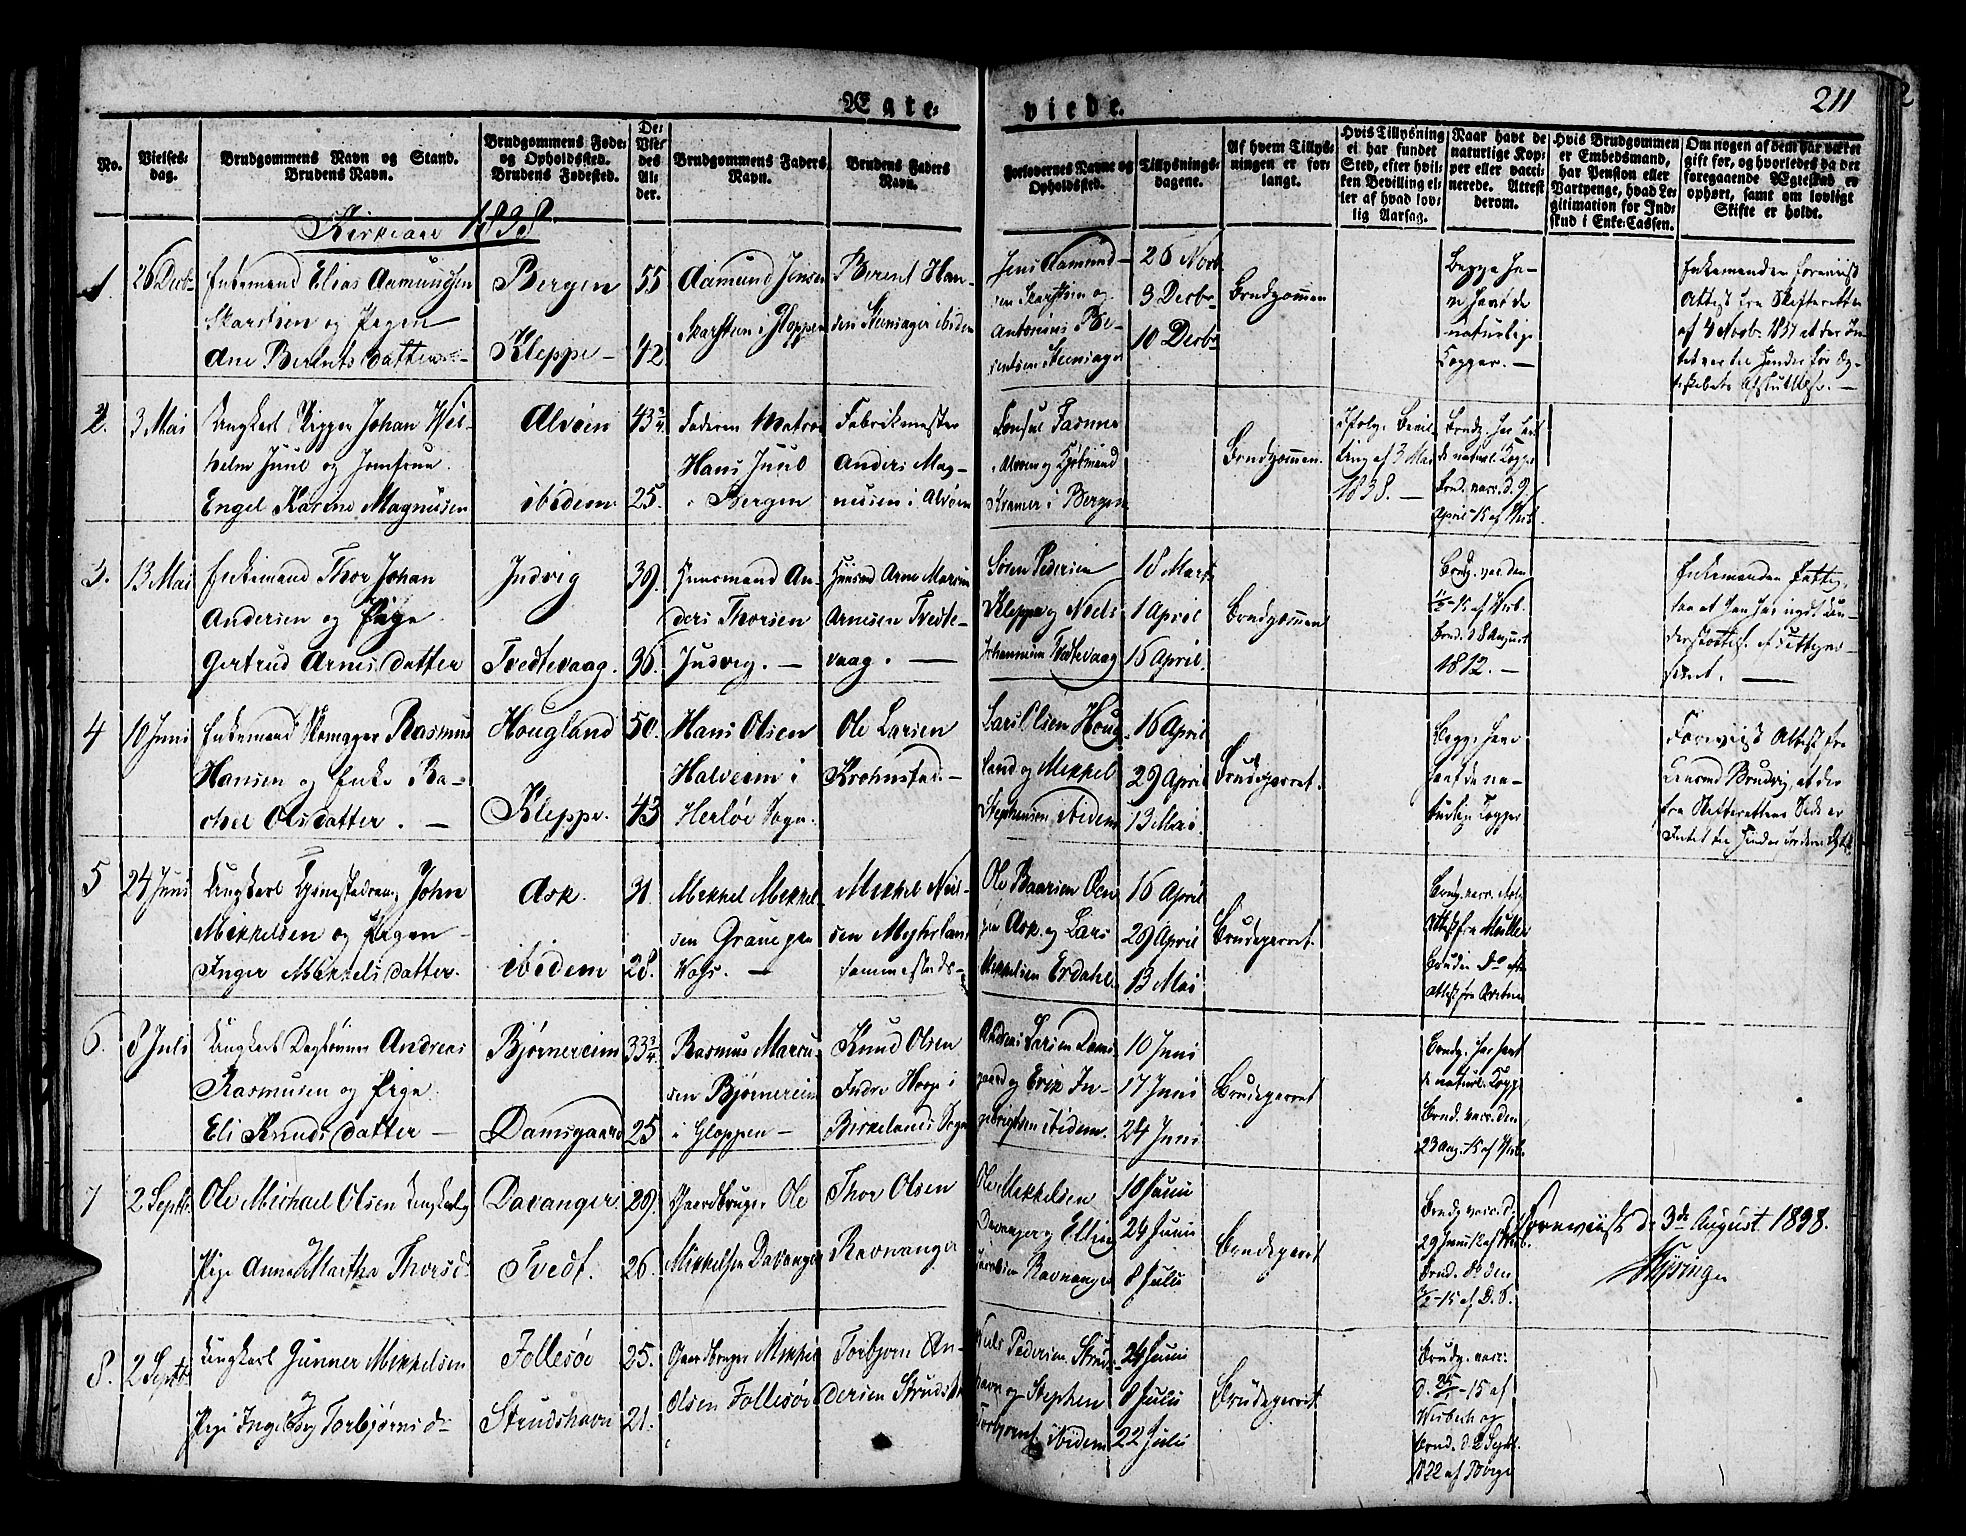 Ægteviede.
211
No.
Vielses-
dag.
Brudgommens Navn og Stand.
Brudens Navn.
Brudgommens Føde-
og Opholdssted.
Brudens Fødested.
De
Vie-
des
Al-
der.
Brudgommens Faders
Navn.
Brudens Faders
Navn.
Forlovernes Navne og
Opholdssted.
Tillysnings-
dagene.
Af hvem Tillys-
ningen er for-
langt.
Hvis Tillysning
ei har fundet
Sted, efter hvil-
ken Bevilling el-
ler af hvad lov-
lig Aarsag.
Naar havt de
naturlige Kop-
per eller vacci-
nerede. Attest
derom.
Hvis Brudgommen
er Embedsmand,
har Pension eller
Vartpenge, hvad Le-
gitimation for Ind-
skud i Enke-Cassen.
Om nogen af dem har været
gift før, og hvorledes da det
foregaaende Ægteskab er
ophørt, samt om lovligt
Skifte er holdt.
Kirkeaar 1838.
1.
26 Decbr
Enkemand Elias Aamundsen
Skarsteen og Pigen
Ane Berentsdatter
Bergen
Kleppe
55
42
Aamund Jensen
Skarsteen i Gloppen
Berent Han-
sen Steensager ibidem
Jens Aamund-
sen Skarsteen og
Antonius Be-
rentsen Steensager
26 Novb.
3 Decbr
10 Decbr
Brudgommen
Begge ha-
ve havt de
naturlige
Kopper.
Enkemanden foreviist
Attest fra Skifteretten
af 4 Novb. 1837 at der In-
tet var til Hinder for Æg-
teskabets Afsluttelse.
2.
3 Mai
Ungkarl Rigger Johan Wil-
helm Juul og Jomfrue
Engel Karine Magnusen
Alvøen
ibidem
43 3/4
25.
Faderen Matros
Hans Juul
i Bergen
Fabrikmester
Anders Mag-
nusen i Alvøen
Consul Fasmer
i Alvøen og Kjøbmand
Kramer i Bergen
Brudgommen.
Ifølge Bevil-
ling af 3 Mai
1838.
Brudg. har havt
de naturl. Kopper
Brud. vacc. d. 9
April 15 af Wisb.
3.
13 Mai
Enkemand Thor Johan
Andersen og Pige
Gertrud Arnesdatter
Judvig
Tvedtevaag.
39.
36.
Huusmand An-
ders Thorsen
Judvig.
Huusmd Arne Marcus
Arnesen Tvedte-
vaag.
Søren Pedersen
Kleppe og Niels
Johannesen Tvedtevaag
18 Marts
1 April
16 April.
Brudgommen
Brudg. vac. den
15 af Wisb.
Brud. 18 August
1812.
4
10 Juni
Enkemand Skomager Rasmus
Hansen og Enke Ra-
chel Olsdatter.
Hougland
Kleppe.
50.
43
Hans Olsen
Halveren i
Herløe Sogn.
Ole Larsen
Krohnstad.
Lars Olsen Houg-
land og Mikkel
Stephensen ibidem
16 April
29 April
13 Mai.
Brudeparret.
Begge have
havt de na-
turlige Kopper
Foreviist Attest fra
5
24 Juni
Ungkarl Tjenestedreng John
Mikkelsen og Pigen
Inger Mikkelsdatter.
Ask.
ibidem
31.
28.
Mikkel Mikkel-
sen Graue paa
Vos.
Mikkel Niel-
sen Myhrland
sammesteds
Ole Baarsen Øen
paa Ask og Lars
Mikkelsen Erdahl.
16 April
29 April
13 Mai
Brudeparret.
Brudg. vacc. ifølge
Attest fra Müller
Bruden Do efter
Attest fra
6.
8 Juli
Ungkarl Dagløner Andreas
Rasmusen og Pige
Eli Knudsdatter
Bjørnereim
Damsgaard
33 3/4
25
Rasmus Marcu-
sen Bjørnereim
i Gloppen
Knud Olsen
Indre Hope i
Birkelands Sogn
Andreas Larsen Dams-
gaard og Erik In-
gebrigtsen ibidem.
10 Juni
17 Juni
24 Juni
Brudeparret
Brudg. har havt
de naturl. Kopper
Brud. vacc. den
23 Aug. 15 af Wisb.
7
2 Septbr.
Ole Michael Olsen Ungkarl og
Pige Anna Martha Thorsd.
Davanger
Tvedt.
29.
26.
Gaardbruger Ole
Mikkelsen Davanger
Thor Olsen
Ravnanger
Ole Mikkelsen
Davanger og Elling
Ravnanger
10 Juni
24 Juni
8 Juli
Brudeparret
Brudg vacc. d.
29 Juni 12 af Wisb.
Brud. do den
15 af D. S.
Foreviist d. 3de August 1838.
8.
2 Septbr
Ungkarl Gunner Mikkelsen
Pige Ingeborg Torbjørnsd.
Follesøe
Strudshavn
25.
21.
Gaardbruger Mikkel
Olsen Follesøe
Torbjørn An-
dersen Strudsh.
Niels Pedersen Struds-
havn og Stephen
Torbjørns. ibidem
24 Juni
8 Juli
22 Juli
Brudeparret
Brudg. vacc.
d. 25 -15 af
Wisbech og
Brud. d. 2 Septb.
1822 af